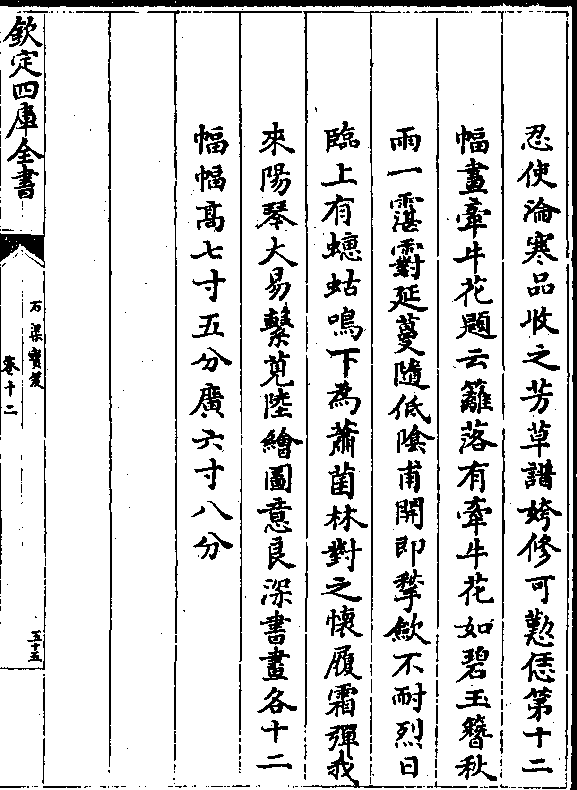 忍使淪寒品收之芳草譜姱修可懃恁第十二
幅畫牽牛花題云籬落有牽牛花如碧玉簪秋
雨一霑䨴延蔓隨低隂甫開即拳歛不耐烈日
臨上有蟪蛄鳴下為蕭茵林對之懷履霜彈我
來陽琴大易繫莧陸繪圖意良深書畫各十二
幅幅髙七寸五分廣六寸八分
欽定四庫全書
石渠寳笈
卷十二
五十五